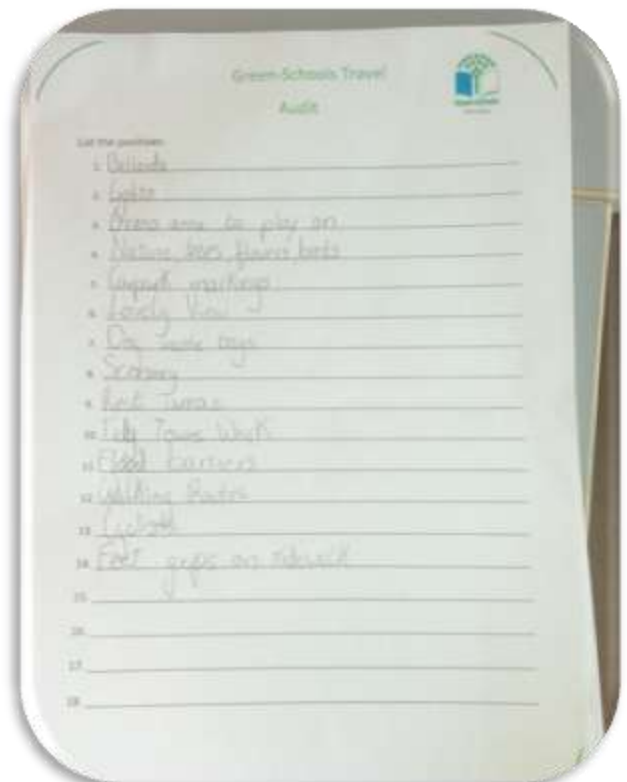 Green-Schools Travel
Audit
List the positives:
1. Bollards
2.
3. Grass area to play on
4. Nature, trees, flower beds
5. Carpark markings
6. Lovely View
7. Dog waste bags
8. Scenery
9.
10. Tidy Towns Work
11. Flood barriers
12. Walking Routes
13.
14. Feet grips on sidewalk
15.
16.
17.
18.